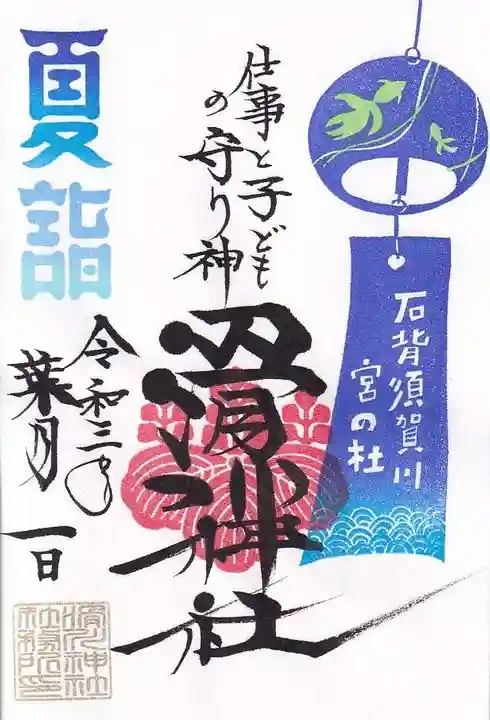 石背須賀川
宮の杜
仕事と子ども
の守り神
滑川神社
夏詣
令和三年
葉月一日